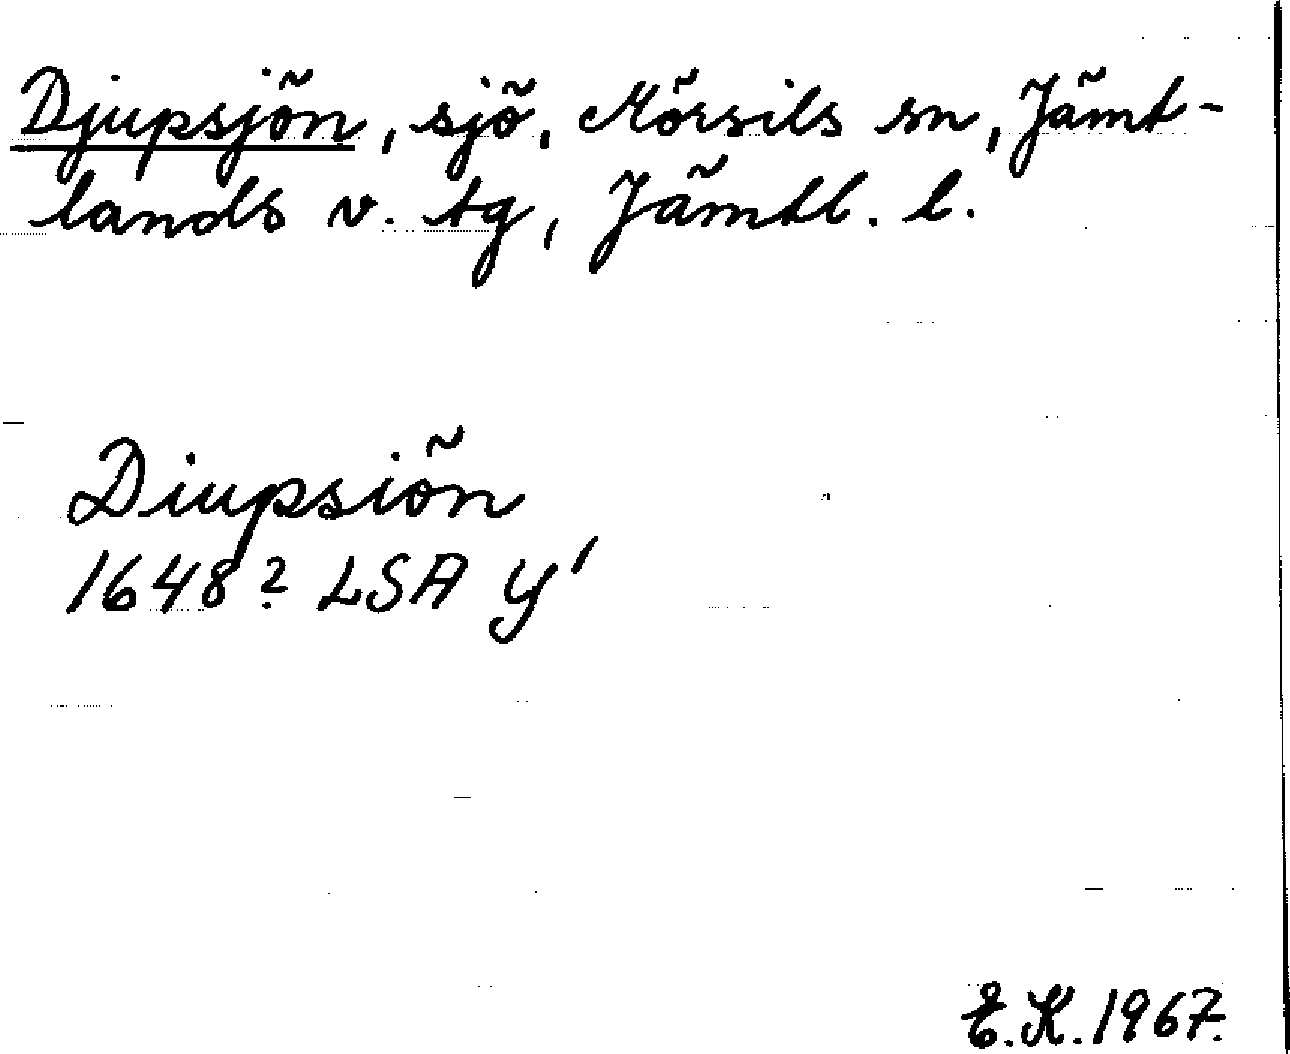 Djupsjön, sjö, Mörsils sn, Jämt-
lands v. tg, Jämtl. l.
Diupsiön
1648? LSA Y'
E.K.1967.